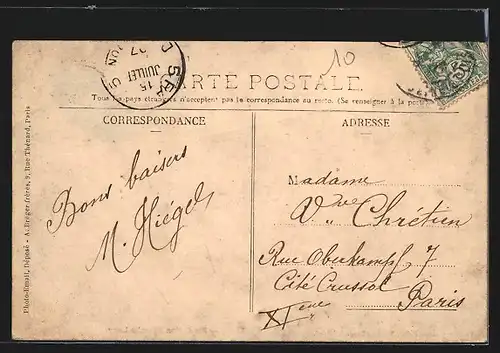 10
15
JUILLET
CARTE POSTALE
Tous les pays étrangers n'acceptent pas la correspondance au recto. (Se renseigner à la poste)
CORRESPONDANCE
ADRESSE
Bons baisers
M. Hiégel
Madame
Vve Chrétien
Rue Oberkampf 7
Cité Crussol
Paris
XIème
Photo-Email, Déposé - A. Breger frères, 9, Rue Thénard, Paris